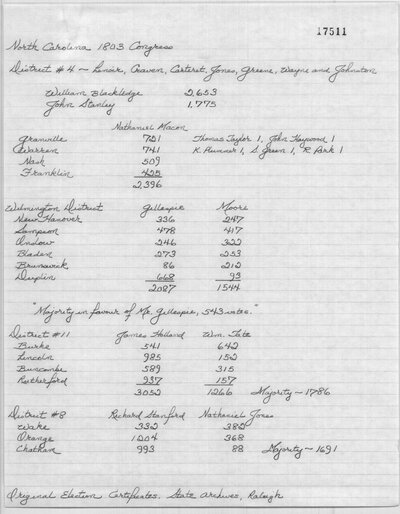 17511
North Carolina 1803 Congress
District #4 ~ Lenoir, Craven, Carteret, Jones, Greene, Wayne and Johnston
William Blackledge 2,653
John Stanley 1,775
Nathaniel Macon
Granville 721 Thomas Taylor 1, John Haywood 1
Warren 741 K. Plummer 1, S. Green 1, R. Park 1
Nash 509
Franklin 425
2396
Wilmington District Gillespie Moore
New Hanover 336 247
Sampson 478 417
Onslow 246 322
Bladen 273 253
Brunswick 86 212
Duplin 668 93
2087 1544
"Majority in favour of Mr. Gillespie, 543 votes."
District #11 James Holland Wm. Tate
Burke 541 642
Lincoln 985 152
Buncombe 589 315
Rutherford 937 157
3052 1266 Majority ~ 1786
District #8 Richard Stanford Nathaniel Jones
Wake 332 382
Orange 1204 368
Chatham 993 88 Majority ~ 1691
Original Election Certificates. State Archives, Raleigh